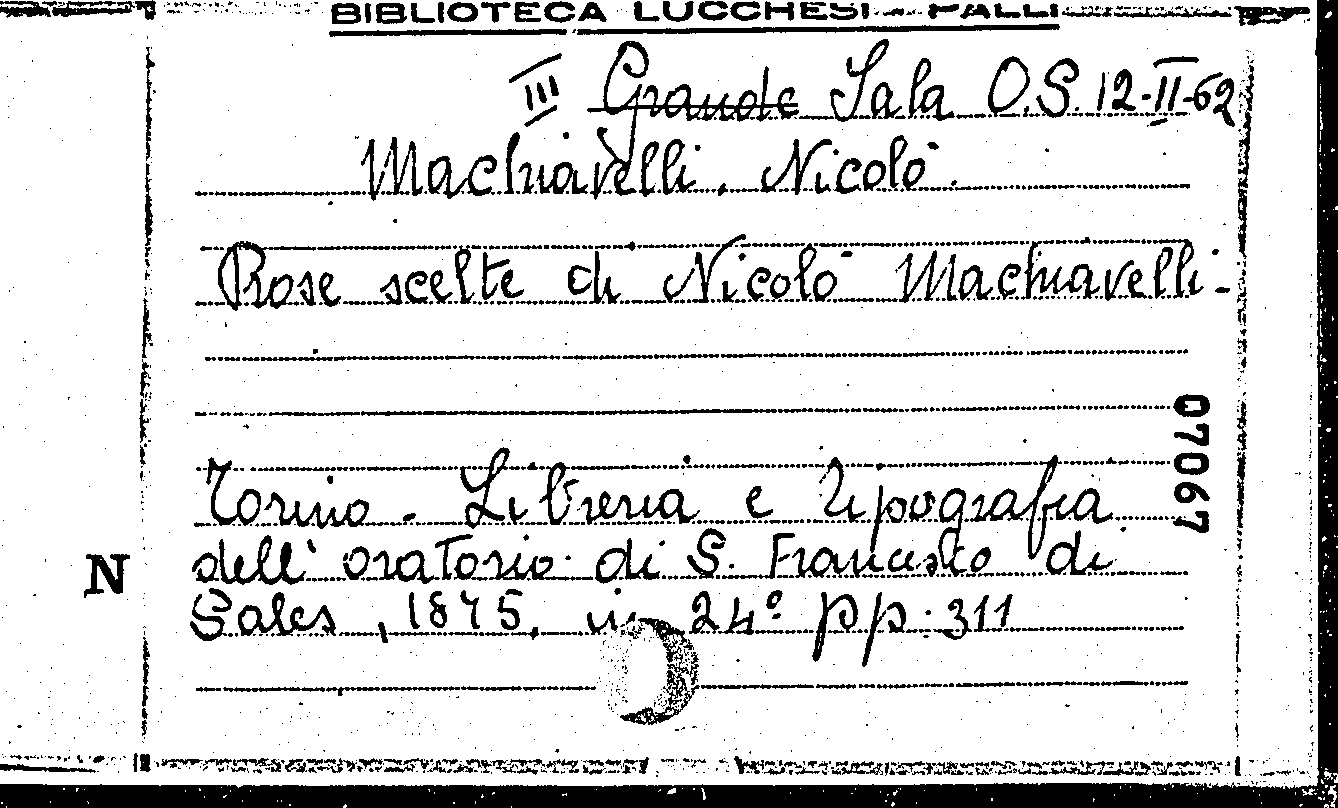 BIBLIOTECA LUCCHESI - PALLI
III Grande Sala O.S. 12-II-62
Machiavelli. Nicolò.
Prose scelte di Nicolò Machiavelli.-
07067
Torino - Libreria e Tipografia
dell' oratorio di S. Francesco di
N
Sales, 1875, in 24° pp. 311